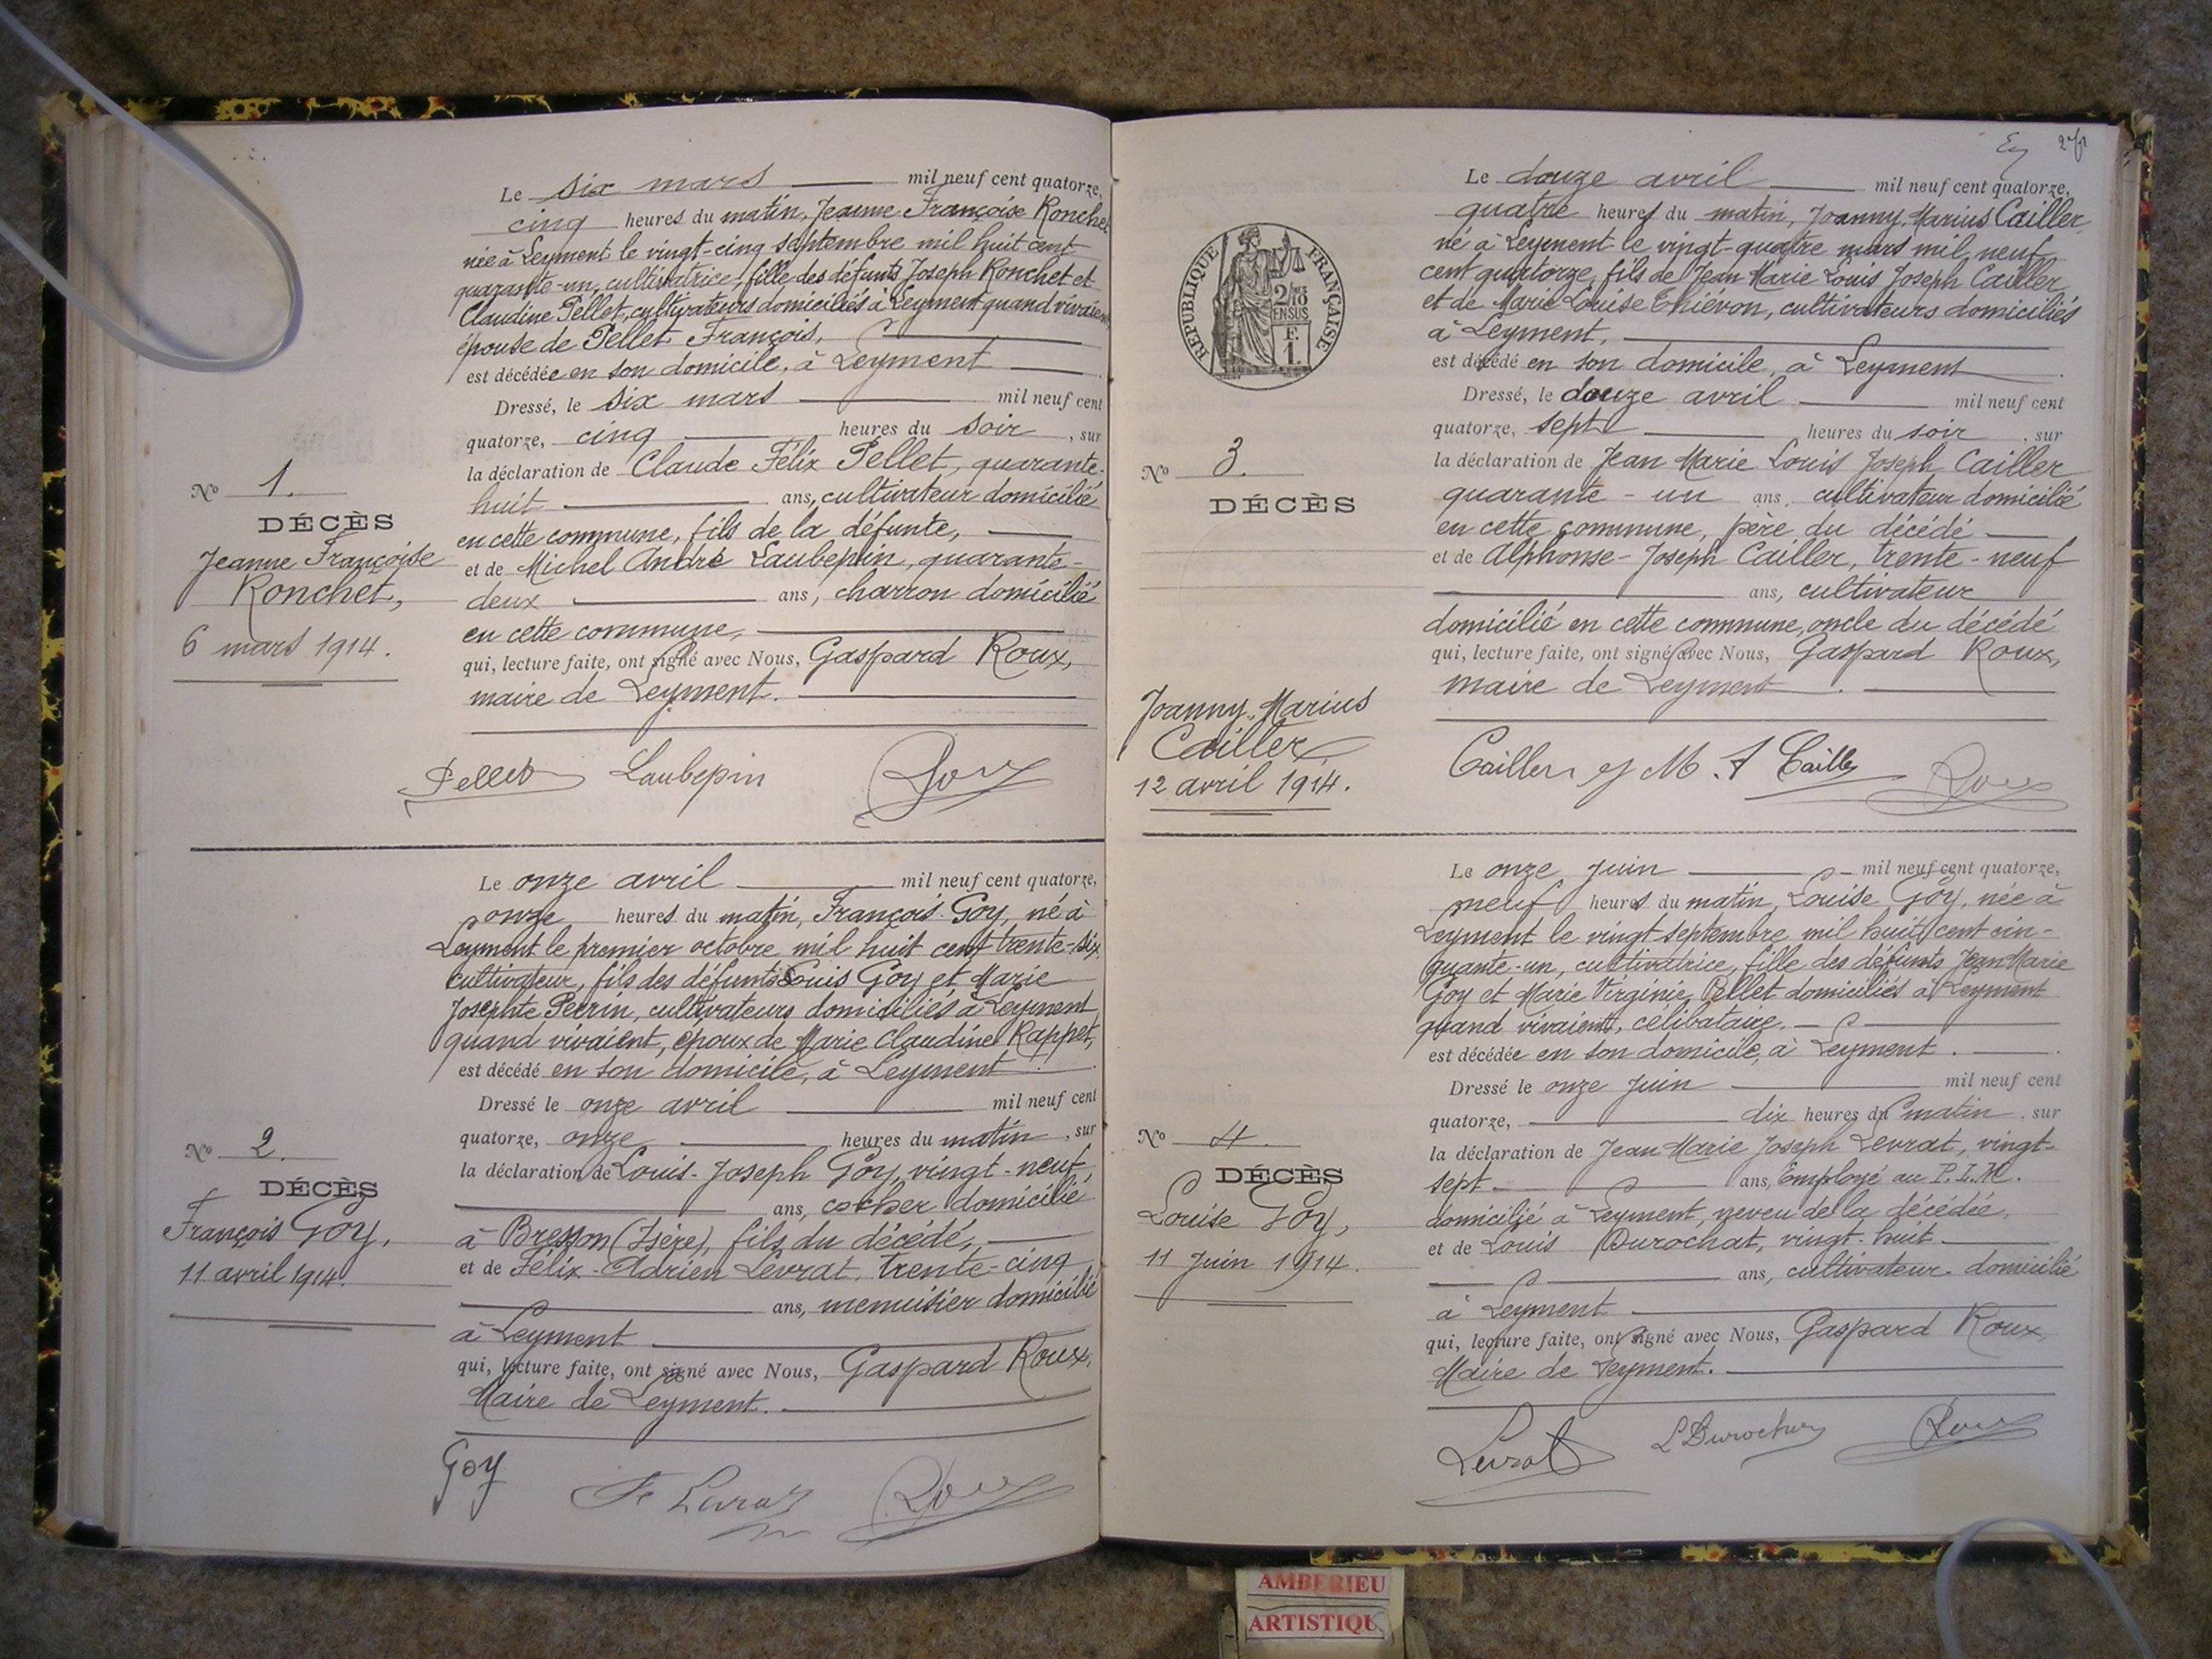 Le six mars mil neuf cent quatorze,
cinq heures du matin, Jeanne Françoise Ronchet
née à Leyment le vingt-cinq septembre mil huit cent
quarante-un, cultivatrice, fille des défunts Joseph Ronchet et
Claudine Pellet, cultivateurs domiciliés à Leyment quand vivaient
épouse de Pellet François,
est décédée en son domicile, à Leyment
Dressé, le six mars mil neuf cent
quatorze, cinq heures du soir, sur
la déclaration de Claude Félix Pellet, quarante-
huit ans, cultivateur domicilié
en cette commune, fils de la défunte,
et de Michel André Laubepin, quarante-
deux ans, charron domicilié
en cette commune,
qui, lecture faite, ont signé avec Nous, Gaspard Roux,
maire de Leyment.
Nº 1.
DÉCÈS
Jeanne Françoise
Ronchet,
6 mars 1914.
Pellet Laubepin Roux
Le onze avril mil neuf cent quatorze,
onze heures du matin, François Goy, né à
Leyment le premier octobre mil huit cent trente-six
cultivateur, fils des défunts Louis Goy et Marie
Josephte Perrin, cultivateurs domiciliés à Leyment
quand vivaient, époux de Marie Claudine Rappet,
est décédé en son domicile, à Leyment
Dressé le onze avril mil neuf cent
quatorze, onze heures du matin, sur
la déclaration de Louis-Joseph Goy, vingt-neuf
ans, cocher domicilié
à Bresson (Isère), fils du décédé,
et de Félix-Adrien Levrat, trente-cinq
ans, menuisier domicilié
à Leyment
qui, lecture faite, ont signé avec Nous, Gaspard Roux,
Maire de Leyment.
Nº 2.
DÉCÈS
François Goy,
11 avril 1914.
Goy Roux
Le douze avril mil neuf cent quatorze,
quatre heures du matin, Joanny-Marius Cailler,
né à Leyment le vingt-quatre mars mil neuf
cent quatorze, fils de Jean Marie Louis Joseph Cailler
et de Marie Louise Thiévon, cultivateurs domiciliés
à Leyment,
est décédé en son domicile, à Leyment
Dressé, le douze avril mil neuf cent
quatorze, sept heures du soir, sur
la déclaration de Jean Marie Louis Joseph Cailler
quarante-un ans, cultivateur domicilié
en cette commune, père du décédé
et de Alphonse-Joseph Cailler, trente-neuf
ans, cultivateur
domicilié en cette commune, oncle du décédé
qui, lecture faite, ont signé avec Nous, Gaspard Roux,
maire de Leyment.
RÉPUBLIQUE FRANÇAISE
2/10
EN SUS
F.
1.
Nº 3.
DÉCÈS
Joanny-Marius
Cailler,
12 avril 1914.
Cailler Roux
Le onze juin mil neuf cent quatorze,
neuf heures du matin, Louise Goy, née à
Leyment le vingt septembre mil huit cent cin-
quante-un, cultivatrice, fille des défunts Jean Marie
Goy et Marie Virginie Pellet domiciliés à Leyment
quand vivaient, célibataire.
est décédée en son domicile, à Leyment.
Dressé le onze juin mil neuf cent
quatorze, dix heures du matin, sur
la déclaration de Jean Marie Joseph Levrat, vingt-
sept ans, Employé au P.L.M.
domicilié à Leyment, neveu de la décédée,
et de Louis Durochat, vingt-huit
ans, cultivateur domicilié
à Leyment
qui, lecture faite, ont signé avec Nous, Gaspard Roux,
Maire de Leyment.
Nº 4.
DÉCÈS
Louise Goy,
11 Juin 1914.
Levrat L Durochat Roux
AMBERIEU
ARTISTIQU